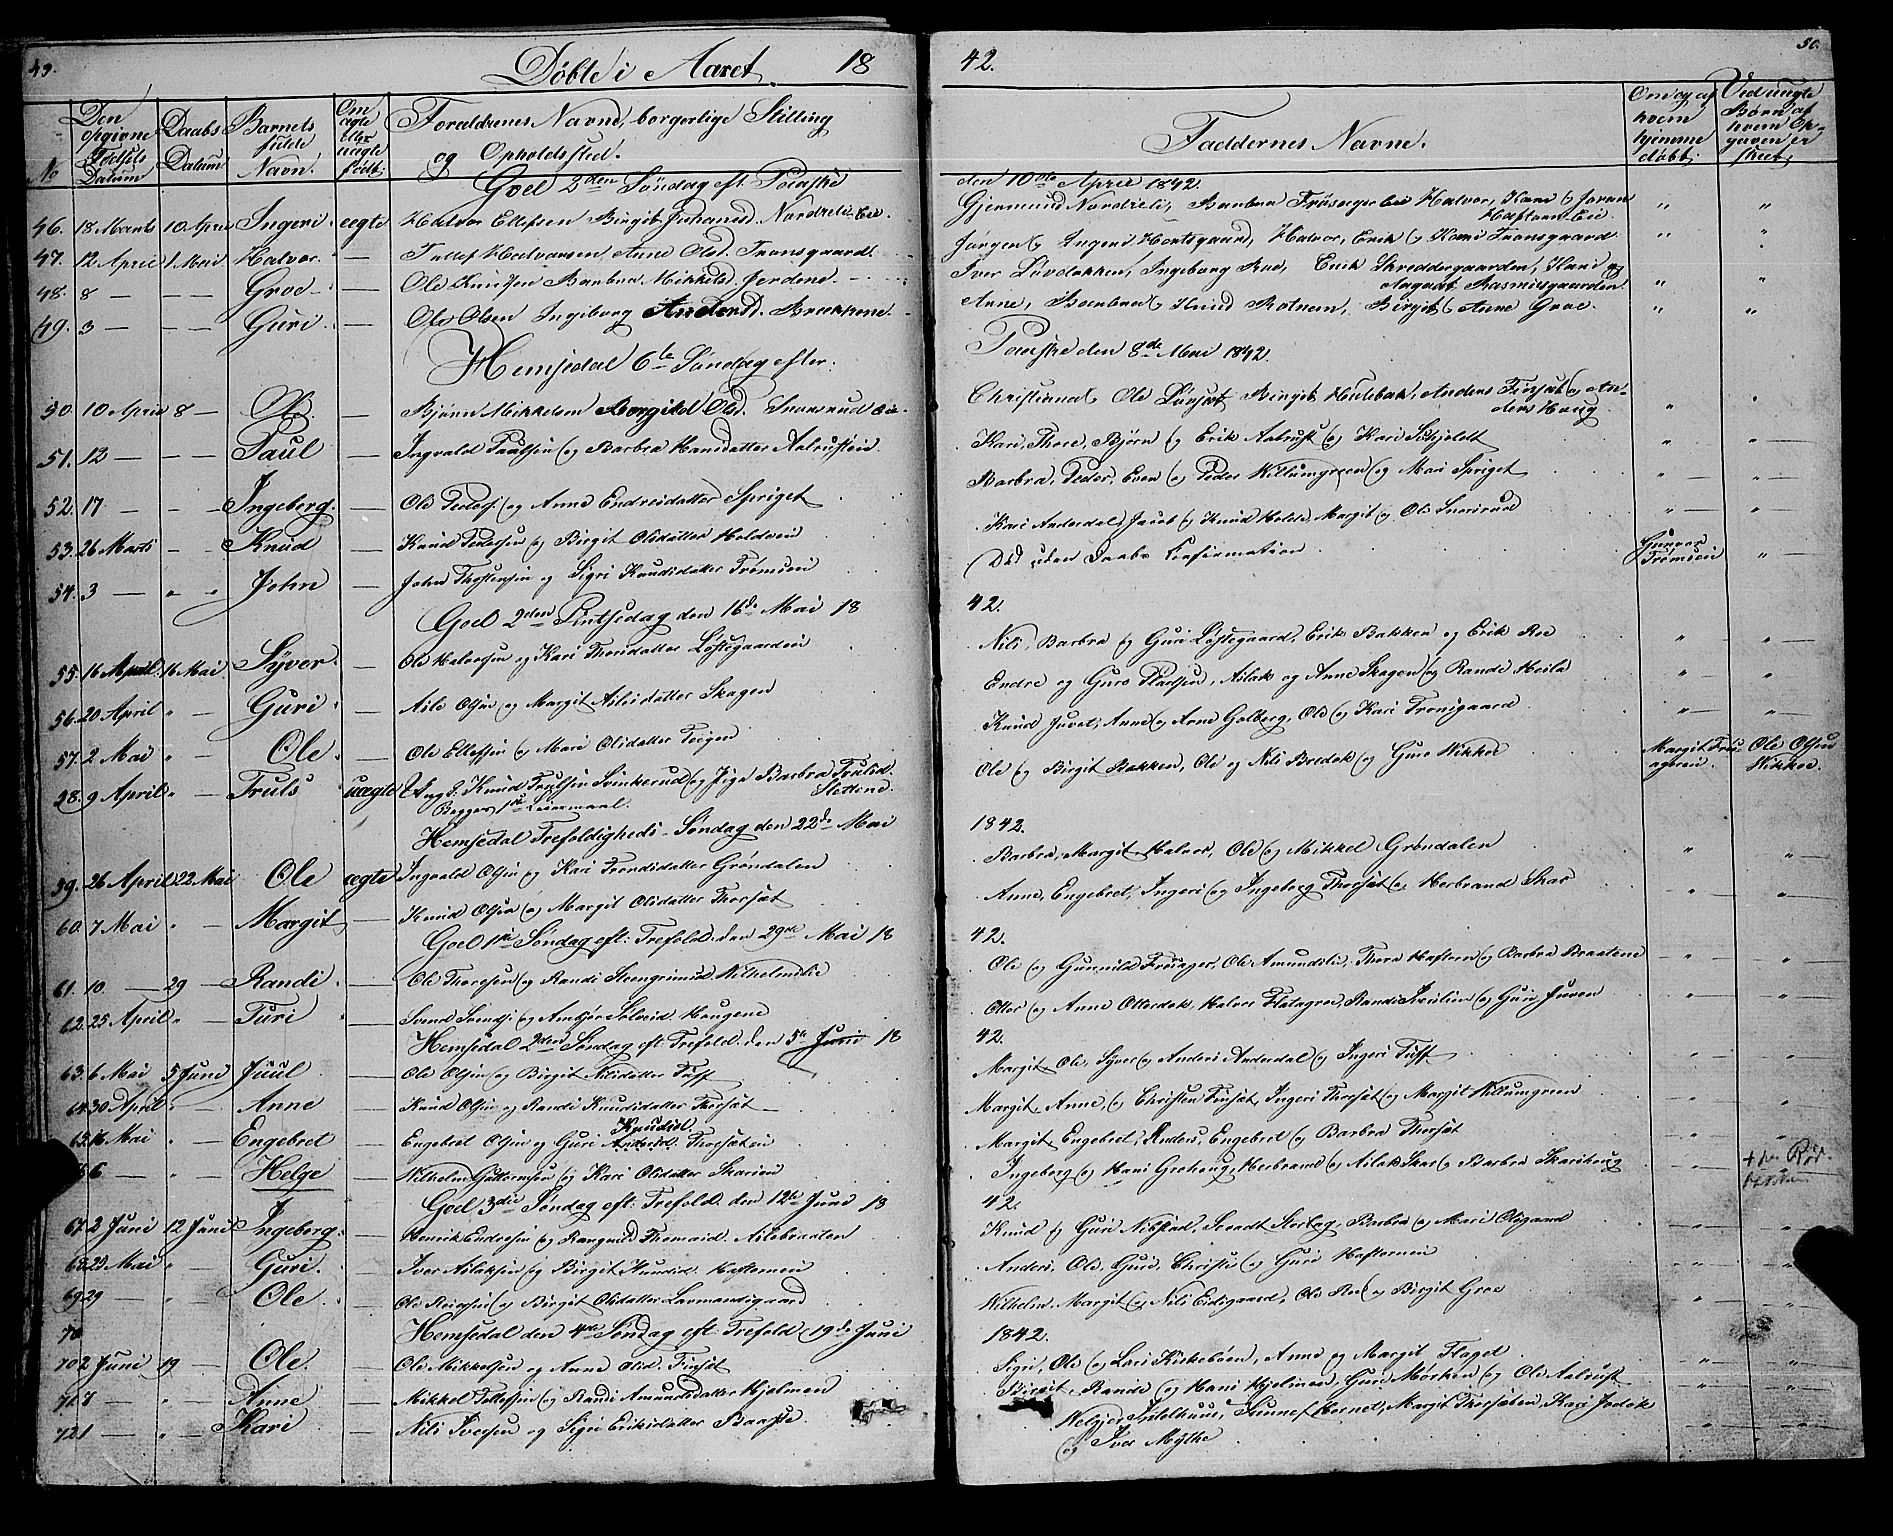 49.
Døbte i Aaret 18
42.
50.
No
Den opgivne Fødsels Datum
Daabs Datum
Barnets fulde Navn.
Om ægte eller uægte født.
Forældrenes Navne, borgerlige Stilling og Opholdssted.
Faddernes Navne.
Om og af hvem hjemme døbt.
Ved uægte Børn, af hvem Opgaven er skeet.
Goel 2den Søndag eft. Paaske
den 10de April 1842.
46. 18 Marts 10 April Ingeri. ægte Halvor Ellefsen Birgit Johansd. Nordreli Eie.
Gjermund Nordreli, Barbra Frøsager Eie Halvor, Kari og Joran Haftorn Eie. " "
47. 12 April 1 Mai Halvor. — Tollef Hedvarsen Anne Olsd. Tronsgaard.
Jørgen og Ingeri Hertsgaard, Halvor, Erik og Kari Tronsgaard " "
48. 8 — — — Groe — Ole Knutsen Barbra Mikkelsd. Jordene
Iver Løvdokken, Ingeborg Rue, Erik Skreddergaarden, Kari og Aagodt Rasmusgaarden. " "
49. 3 — — — Guri. — Ole Olsen Ingeborg Andersd. Brækkene
Anne, Barbra og Knud Rotnem, Birgit og Anne Groe. " "
Hemsedal 6te Søndag efter:
Paaske den 8de Mai 1842.
50. 10 April 8 — Ole. — Bjørn Mikkelsen Borgild Olsd. Snarsrud Eie
Christiana, Ole Løvsæt, Birgit Hulebak, Anders Finsæt og Anders Haug. " "
51. 12 — — — Paul — Ingvald Paulsen og Barbra Hansdatter Aalrusteie.
Kari, Thore, Bjørn og Erik Aalrust og Kari Schjoldt " —
52. 17 — — — Ingeborg. — Ole Peders. og Anne Endresdatter Spriget
Barbra, Peder, Even og Peder Willumgreen og Mari Spriget " — " —
53. 26 Marts — — Knud — Knud Pedersen og Birgit Olsdatter Holdeeie
Kari Anderdal, Jacob og Knud Holde, Margit og Ole Snersrud " — "
54. 3 — " " John — John Thostensen og Sigri Knudsdatter Trømeie
Død uden Daabs Confirmation Gunvor Trømeie " —
Goel 2den Pintsedag den 16de Mai 18
42.
55. 16 April 16 Mai. Syver. — Ole Halvorsen og Kari Thoresdatter Løstegaardeie
Nils, Barbra og Guri Løstegaard, Erik Bakken og Erik Roe " " —
56. 20 April " — Guri — Asle Olsen og Margit Aslesdatter Skagen
Endre og Guro Pladsen, Aslak og Anne Skagen og Rande Heslo " " —
57. 2 Mai " — Ole. — Ole Ellefsen og Mari Olsdatter Teigen
Knud Juvet, Anne og Arne Golberg, Ole og Kari Tronsgaard " — " —
58. 9 April " — Truls uægte Ung. K. Knud Trulsen Svinkerud og Pige Barbra Trulsd. Slettene. Begges 1ste Leiermaal.
Ole og Birgit Bakken, Ole og Nils Bredok og Guro Wikker Margit Frøsageren. Ole Olsen Wikker.
Hemsedal Trefoldigheds-Søndag den 22de Mai
1842.
59. 26 April 22 Mai Ole ægte Ingvald Olsen og Kari Trondsdatter Grøndalen
Barbra, Margit, Halvor, Ole og Mikkel Grøndalen " " —
60. 7 Mai " — Margit — Knud Olsen og Margit Olsdatter Thorsæt
Anne, Engebret, Ingeri og Ingeborg Thorsæt og Herbrand Skar " — " —
Goel 1ste Søndag eft: Trefold: den 29de Mai 18
42.
61. 10 — 29 — Randi. — Ole Thoresen og Randi Steengrimsd. Wilhelmslie
Ole og Gunnild Frøsager, Ole Amundslie, Thora Haftorn og Barbra Braatene — " — "
62. 25 April " — Turi — Svend Svends. og Ambjør Solveid. Haugene
Ottor og Anne Otterdok, Halvor Flatagrov, Randi og Guri Juven — " — "
Hemsedal 2den Søndag eft. Trefold. den 5te Juni 18
42.
63. 6 Mai 5 Juni Juul — Ole Olsen og Birgit Nilsdatter Tuff
Margit, Ole, Syver og Anders Anderdal og Ingeri Tuff " — "
64. 30 April " — Anne — Knud Olsen og Randi Knudsdatter Thorsæt
Margit, Anne, og Christen Finsæt, Ingeri Thorsæt og Margit Willumgreen " — "
65. 16 Mai " — Engebret — Engebret Olsen og Guri Andersd. Knudsd. Thorsæteie
Margit, Engebret, Anders, Engebret og Barbra Thorsæt " — "
6 — " — Helge — Wilhelm Guttormsen og Kari Olsdatter Skareie
Ingeborg og Hans Grøhoug, Herbrand og Aslak Skar og Barbra Skarshoug " —
Goel 3die Søndag eft: Trefold: den 12te Juni 18
42.
67. 2 Juni 12 Juni Ingeborg. — Henrik Endresen og Rangnild Thomasd. Aslebraaten
Knud og Guri Nibstad, Svendt Stortag, Barbra og Mari Olsgaard " — "
68. 23 Mai " — Guri. — Iver Aslaksen og Birgit Knudsd. Hafterneie
Anders, Ole, Guri, Christi og Guri Hafterneie " — "
69. 29 — " — Ole — Ole Reiersen og Birgit Olsdatter Lavmandsgaard
Wilhelm, Margit og Nils Eidsgaard, Ole Roe og Birgit Groe " — "
70 Hemsedal den 4de Søndag eft: Trefold 19de Juni
1842.
70. 2 Juni 19 — Ole. — Ole Mikkelsen og Anne Olsd. Finsæt
Sigri, Ole og Lars Kirkebøen, Anne og Margit Flaget " — "
71. 8 — " — Anne — Mikkel Tollefsen og Randi Amundsdatter Hjelmen
Birgit, Randi og Hans Hjelmen, Guri Mørken og Ole Aalrust " — "
72. 1 — " — Kari — Nils Iversen og Sigri Eriksdatter Baaste.
Sunnef Hernes, Margit Thorsæteie, Kari Jordok og Iver Mythe " — "